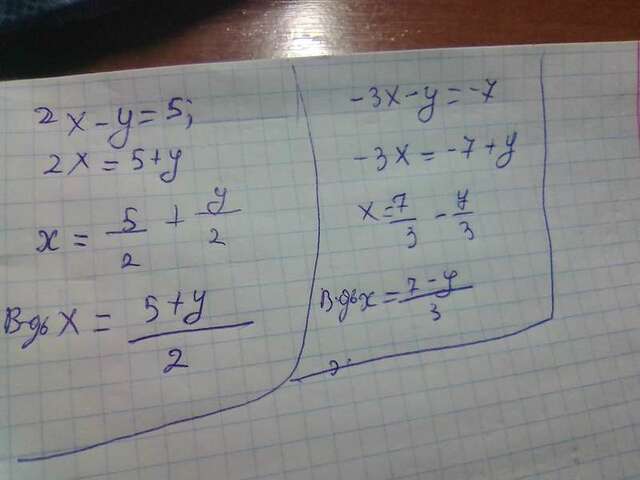 2x-y=5;
2x=5+y
x = 5/2 + y/2
x = 5+y/2
-3x-y=-7
-3x=-7+y
x=7/3 - y/3
x=7-y/3